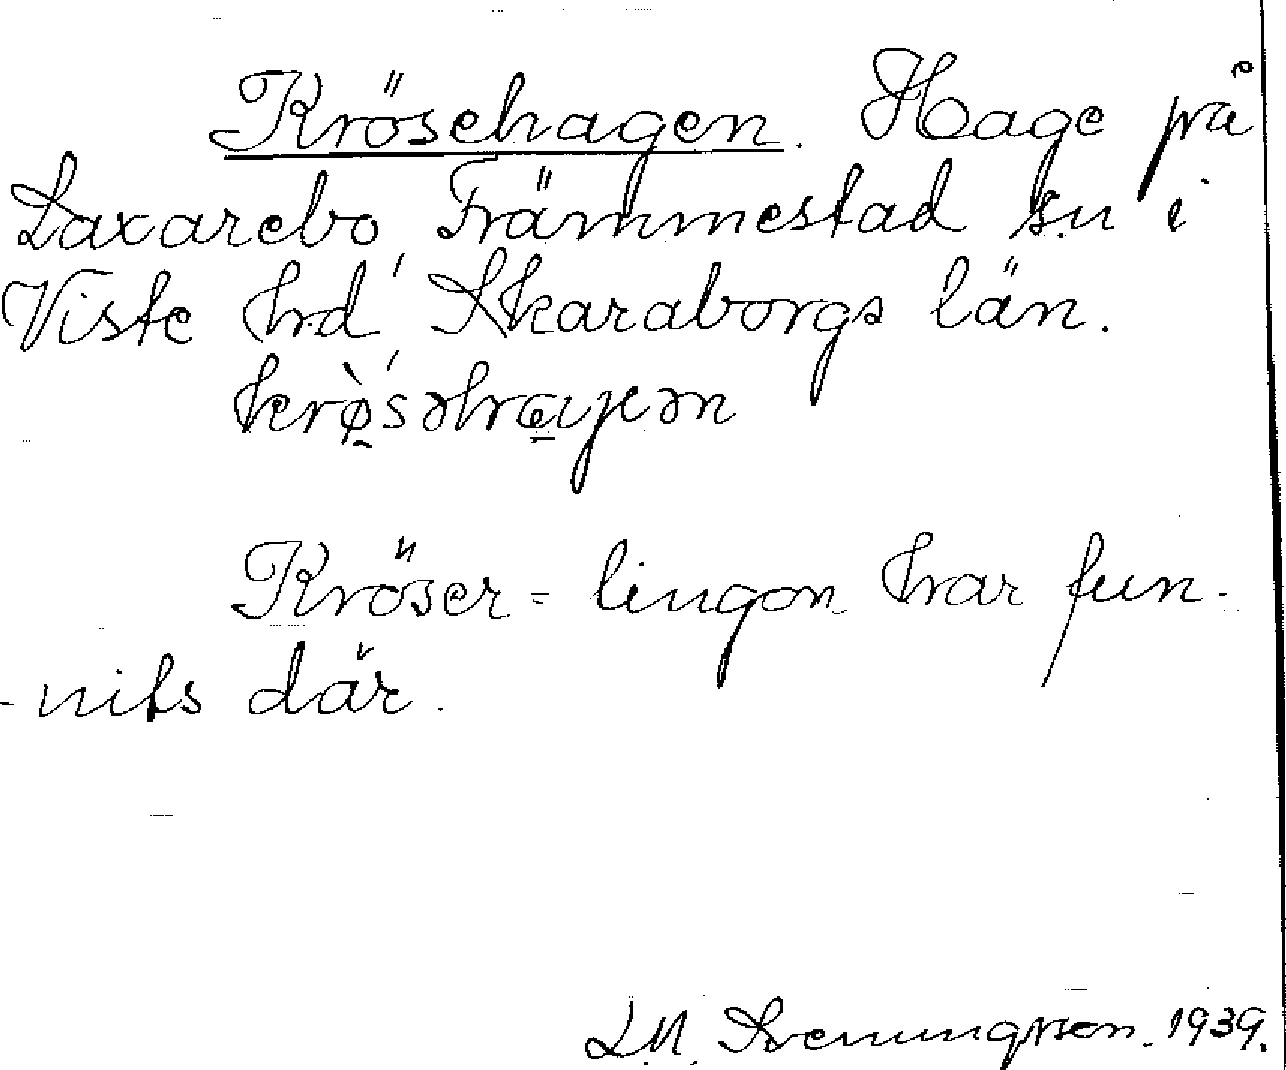 Krösehagen. Hage på
Laxarebo, Främmestad sn i
Viste hd, Skaraborgs län.
krø̀səhaγən
Kröser = lingon har fun-
-nits där.
L.M. Svenungsson. 1939.